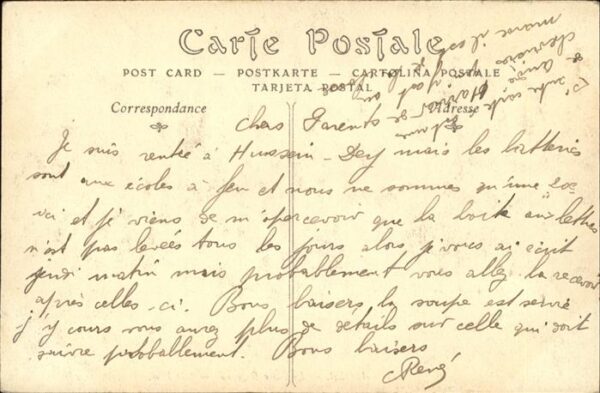 Carte Postale
POST CARD — POSTKARTE — CARTOLINA POSTALE
TARJETA POSTAL
Correspondance
Adresse
Chers Parents
Je suis rentré à Hussein-Dey mais les batteries
sont aux écoles à feu et nous ne sommes qu'une 20e
ici et je viens de m'apercevoir que la boite aux lettres
n'est pas levées tous les jours alors je vous ai écrit
jeudi matin mais probablement vous allez la recevoir
après celles-ci. Bons baisers la soupe est servie
j'y cours vous aurez plus de détails sur celle qui doit
suivre probablement. Bons baisers
René